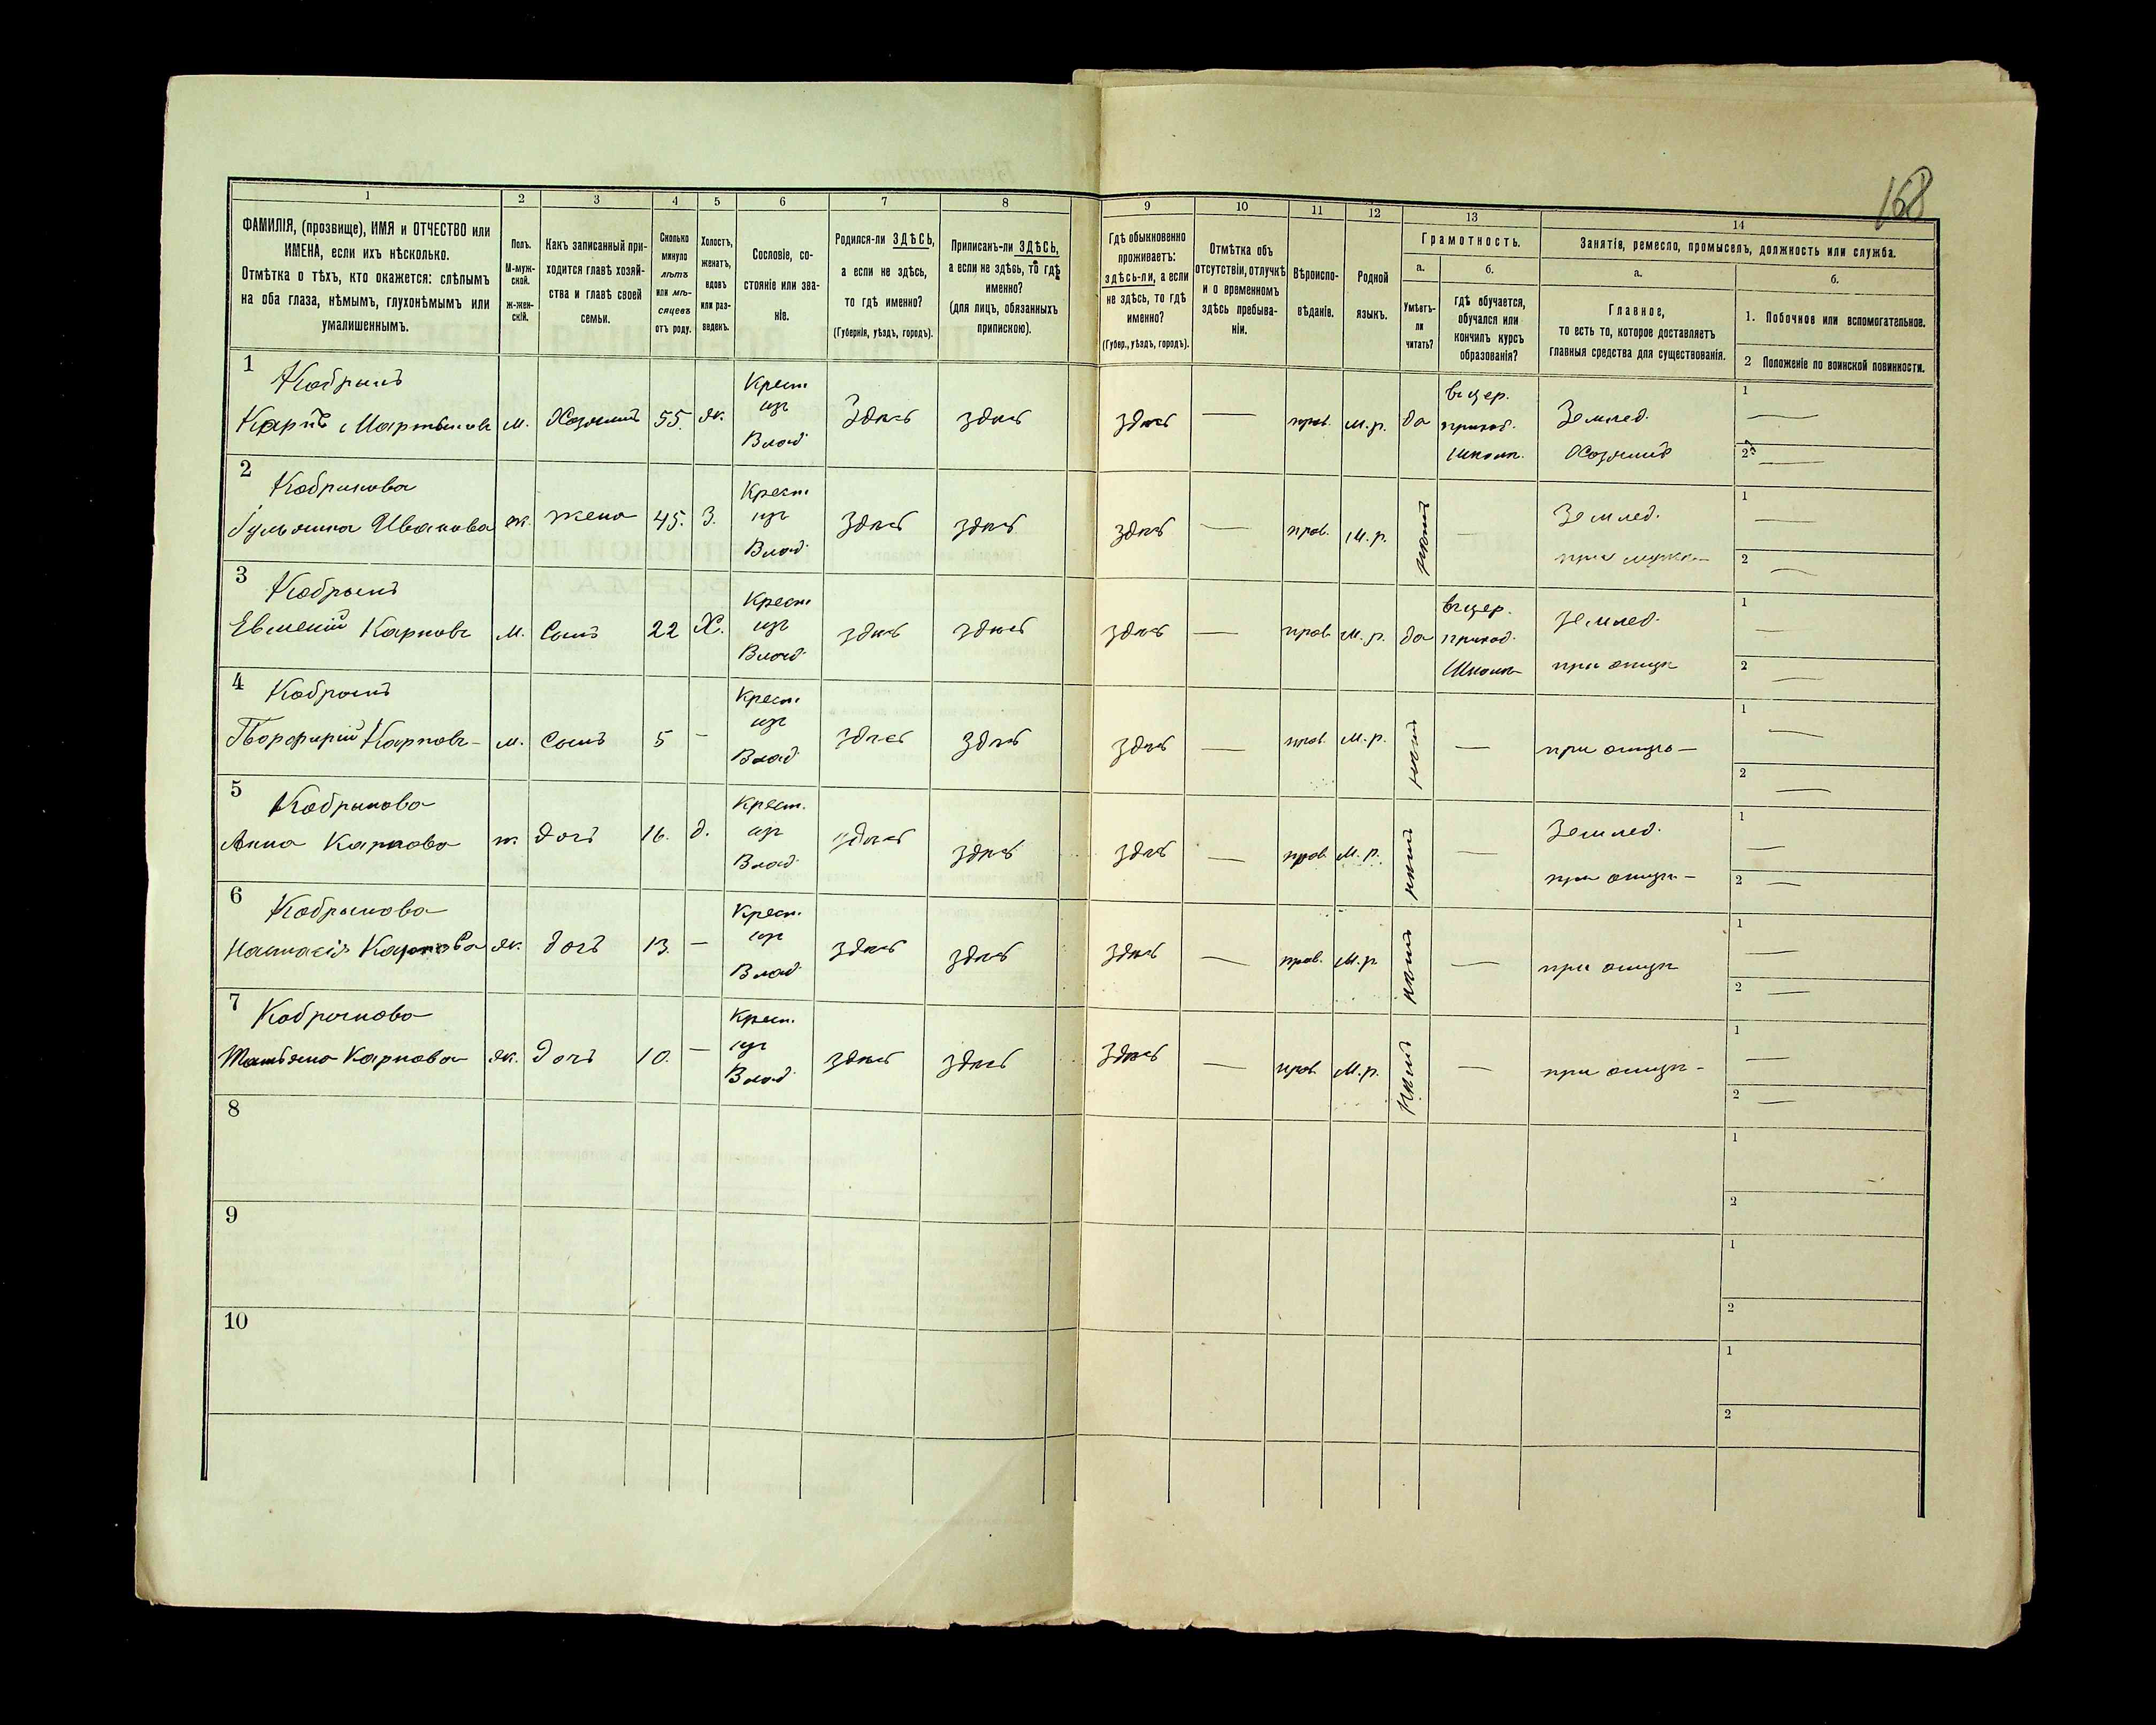 168
1 2 3 4 5 6 7 8 9 10 11 12 13 14
ФАМИЛІЯ, (прозвище), ИМЯ и ОТЧЕСТВО или
ИМЕНА, если ихъ нѣсколько.
Отмѣтка о тѣхъ, кто окажется: слѣпымъ
на оба глаза, нѣмымъ, глухонѣмымъ или
умалишеннымъ.
Полъ.
М-муж-
ской.
ж-жен-
скій.
Какъ записанный при-
ходится главѣ хозяй-
ства и главѣ своей
семьи.
Сколько
минуло
лѣтъ
или мѣ-
сяцевъ
отъ роду.
Холостъ,
женатъ,
вдовъ
или раз-
веденъ.
Сословіе, со-
стояніе или зва-
ніе.
Родился-ли ЗДѢСЬ,
а если не здѣсь,
то гдѣ именно?
(Губернія, уѣздъ, городъ).
Приписанъ-ли ЗДѢСЬ,
а если не здѣсь, то гдѣ
именно?
(для лицъ, обязанныхъ
припискою).
Гдѣ обыкновенно
проживаетъ:
здѣсь-ли, а если
не здѣсь, то гдѣ
именно?
(Губер., уѣздъ, городъ).
Отмѣтка объ
отсутствіи, отлучкѣ
и о временномъ
здѣсь пребыва-
ніи.
Вѣроиспо-
вѣданіе.
Родной
языкъ.
Грамотность.
а.
Умѣетъ-
ли
читать?
б.
гдѣ обучается,
обучался или
кончилъ курсъ
образованія?
Занятія, ремесло, промыселъ, должность или служба.
а.
Главное,
то есть то, которое доставляетъ
главныя средства для существованія.
б.
1. Побочное или вспомогательное.
2 Положеніе по воинской повинности.
1
Кобрынъ
Карпъ Мартыновъ м. Хозяинъ 55. ж. Крест. изъ Влад. Здѣсь здѣсь здѣсь — прав. м.р. да въ цер. приход. школѣ. Землед. Хозяинъ 1 — 2 —
2
Кобрынова
Ульяна Иванова ж. жена 45. З. Крест. изъ Влад. здѣсь здѣсь здѣсь — прав. м.р. нѣтъ — Землед. при мужѣ 1 — 2 —
3
Кобрынъ
Евменій Карповъ м. Сынъ 22 Х. Крест. изъ Влад. здѣсь здѣсь здѣсь — прав. м.р. да въ цер. приход. школѣ Землед. при отцѣ 1 — 2 —
4
Кобрынъ
Порфирій Карповъ м. Сынъ 5 — Крест. изъ Влад. здѣсь здѣсь здѣсь — прав. м.р. нѣтъ — при отцѣ 1 — 2 —
5
Кобрынова
Анна Карпова ж. дочь 16. д. Крест. изъ Влад. здѣсь здѣсь здѣсь — прав. м.р. нѣтъ — Землед. при отцѣ 1 — 2 —
6
Кобрынова
Настасія Карпова ж. дочь 13. — Крест. изъ Влад. здѣсь здѣсь здѣсь — прав. м.р. нѣтъ — при отцѣ 1 — 2 —
7
Кобрынова
Татьяна Карпова ж. дочь 10. — Крест. изъ Влад. здѣсь здѣсь здѣсь — прав. м.р. нѣтъ — при отцѣ 1 — 2 —
8 1 2
9 1 2
10 1 2